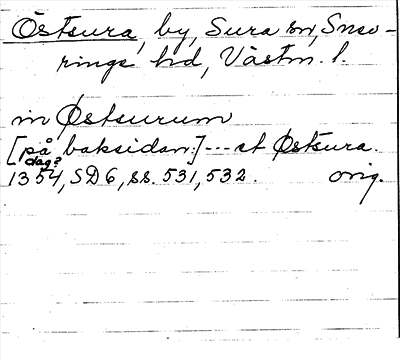 Östsura, by, Sura sn, Snev-
rings hd, Västm. l.
in Østsurum
[på baksidan:] --- et Østsura.
dag?
1354, SD6, ss. 531, 532. orig.